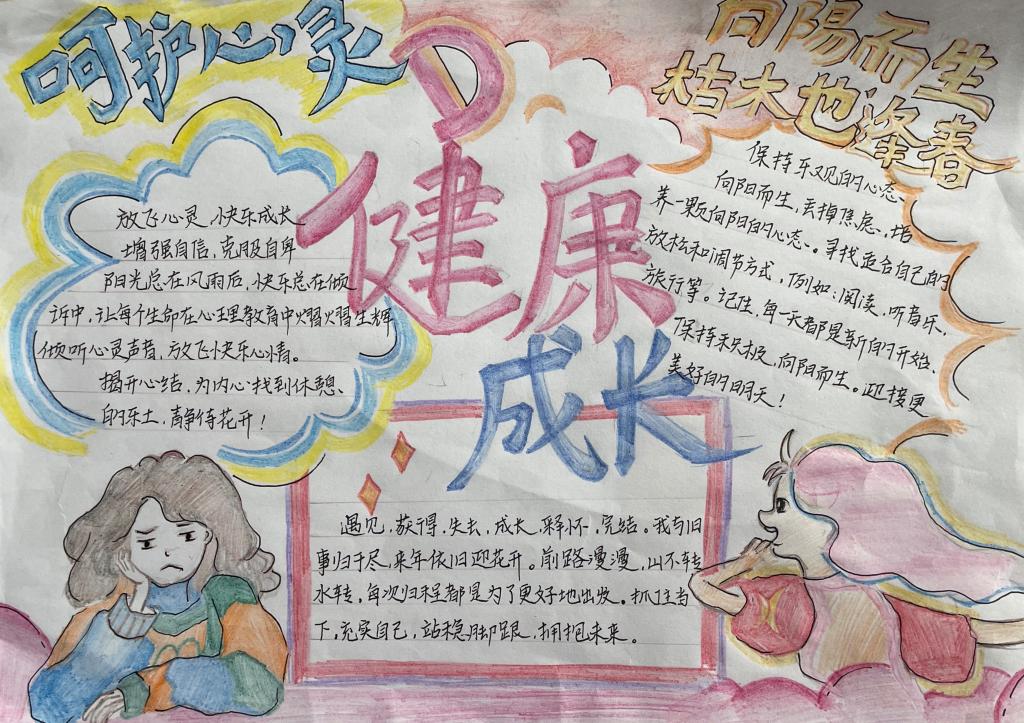 呵护心灵
向阳而生
枯木也逢春
健康
成长
放飞心灵，快乐成长
增强自信，克服自卑
阳光总在风雨后，快乐总在倾
诉中，让每个生命在心理教育中熠熠生辉
倾听心灵声音，放飞快乐心情。
揭开心结，为内心找到休憩、
的乐土，静待花开！
保持乐观的心态
向阳而生，丢掉焦虑、培
养一颗向阳的心态、。寻找适合自己的
放松和调节方式，例如：阅读、听音乐、
旅行等。记住，每一天都是新的开始、
保持积极、向阳而生。迎接更
美好的明天！
遇见，获得，失去，成长，释怀，完结。我与旧
事归于尽，来年依旧迎花开。前路漫漫，山不转
水转，每次归程都是为了更好地出发。抓住当
下，充实自己，站稳脚跟，拥抱未来。